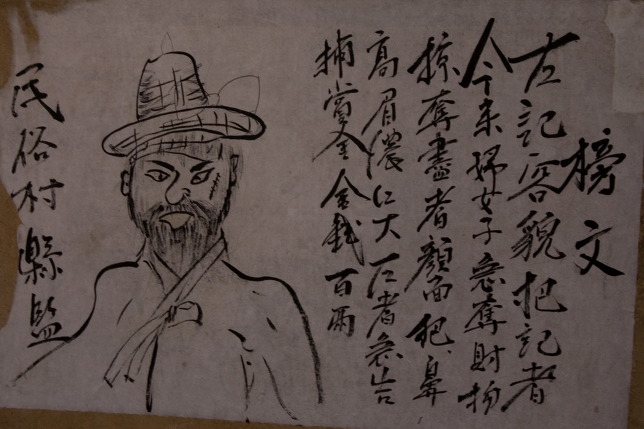 榜文
左記容貌把記者
婦女子急奪財物
掠奪盡者顏面把鼻
高眉濃仁大者急告
捕賞金金錢百兩
民俗村縣監